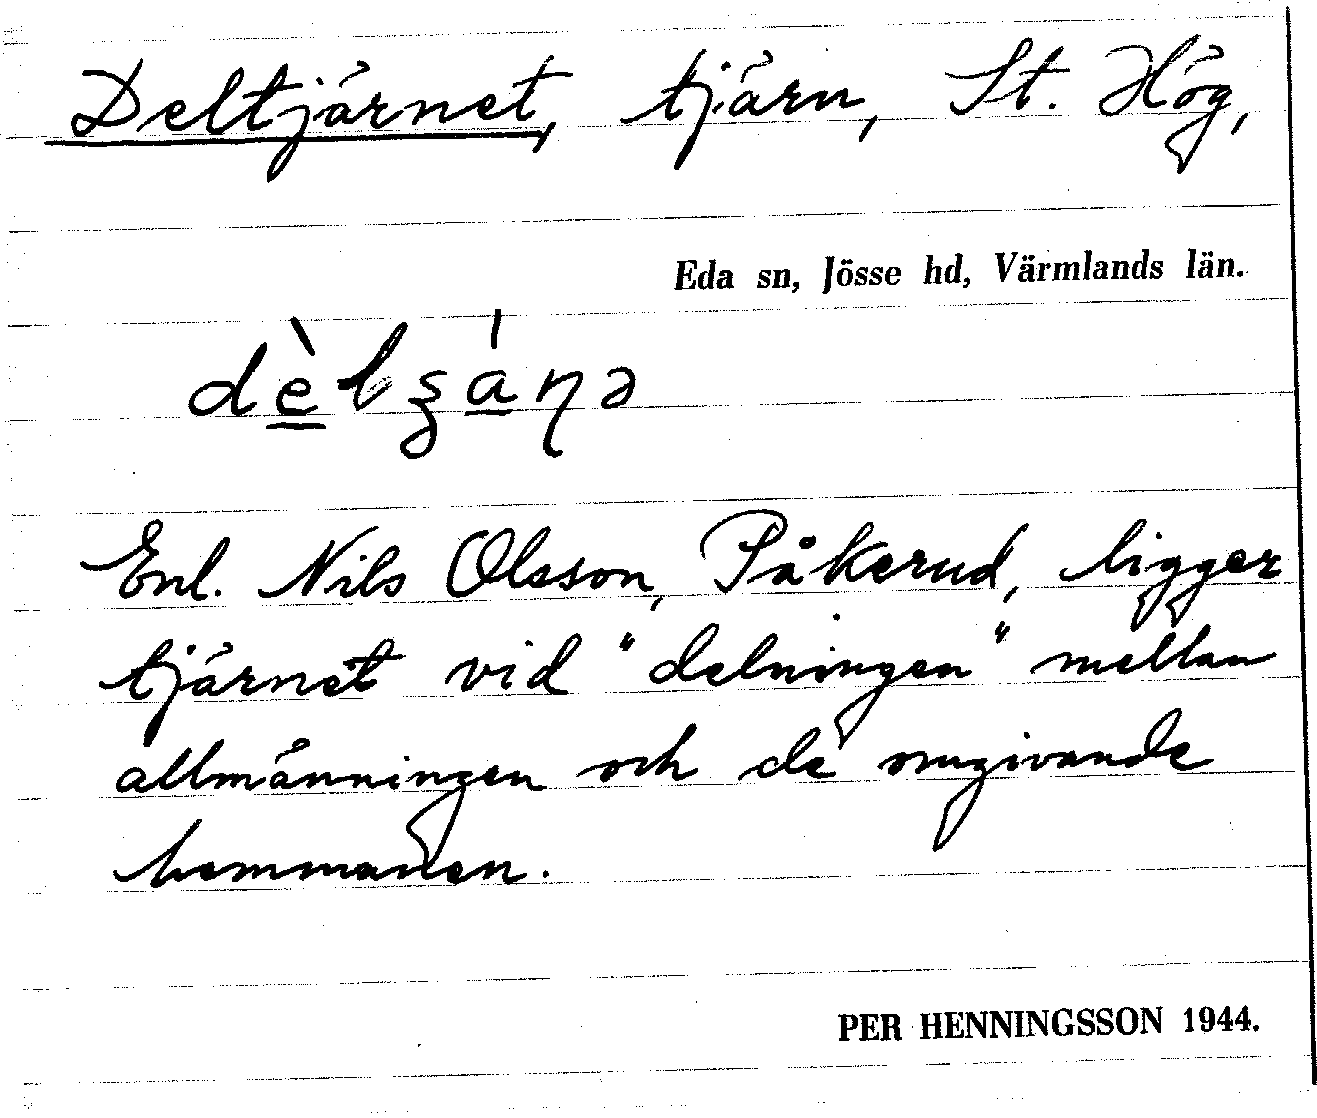 Deltjärnet, tjärn, St. Hög,
Eda sn, Jösse hd, Värmlands län.
dèlʒánə
Enl. Nils Olsson, Påkerud, ligger
tjärnet vid "delningen" mellan
allmänningen och de omgivande
hemmanen.
PER HENNINGSSON 1944.